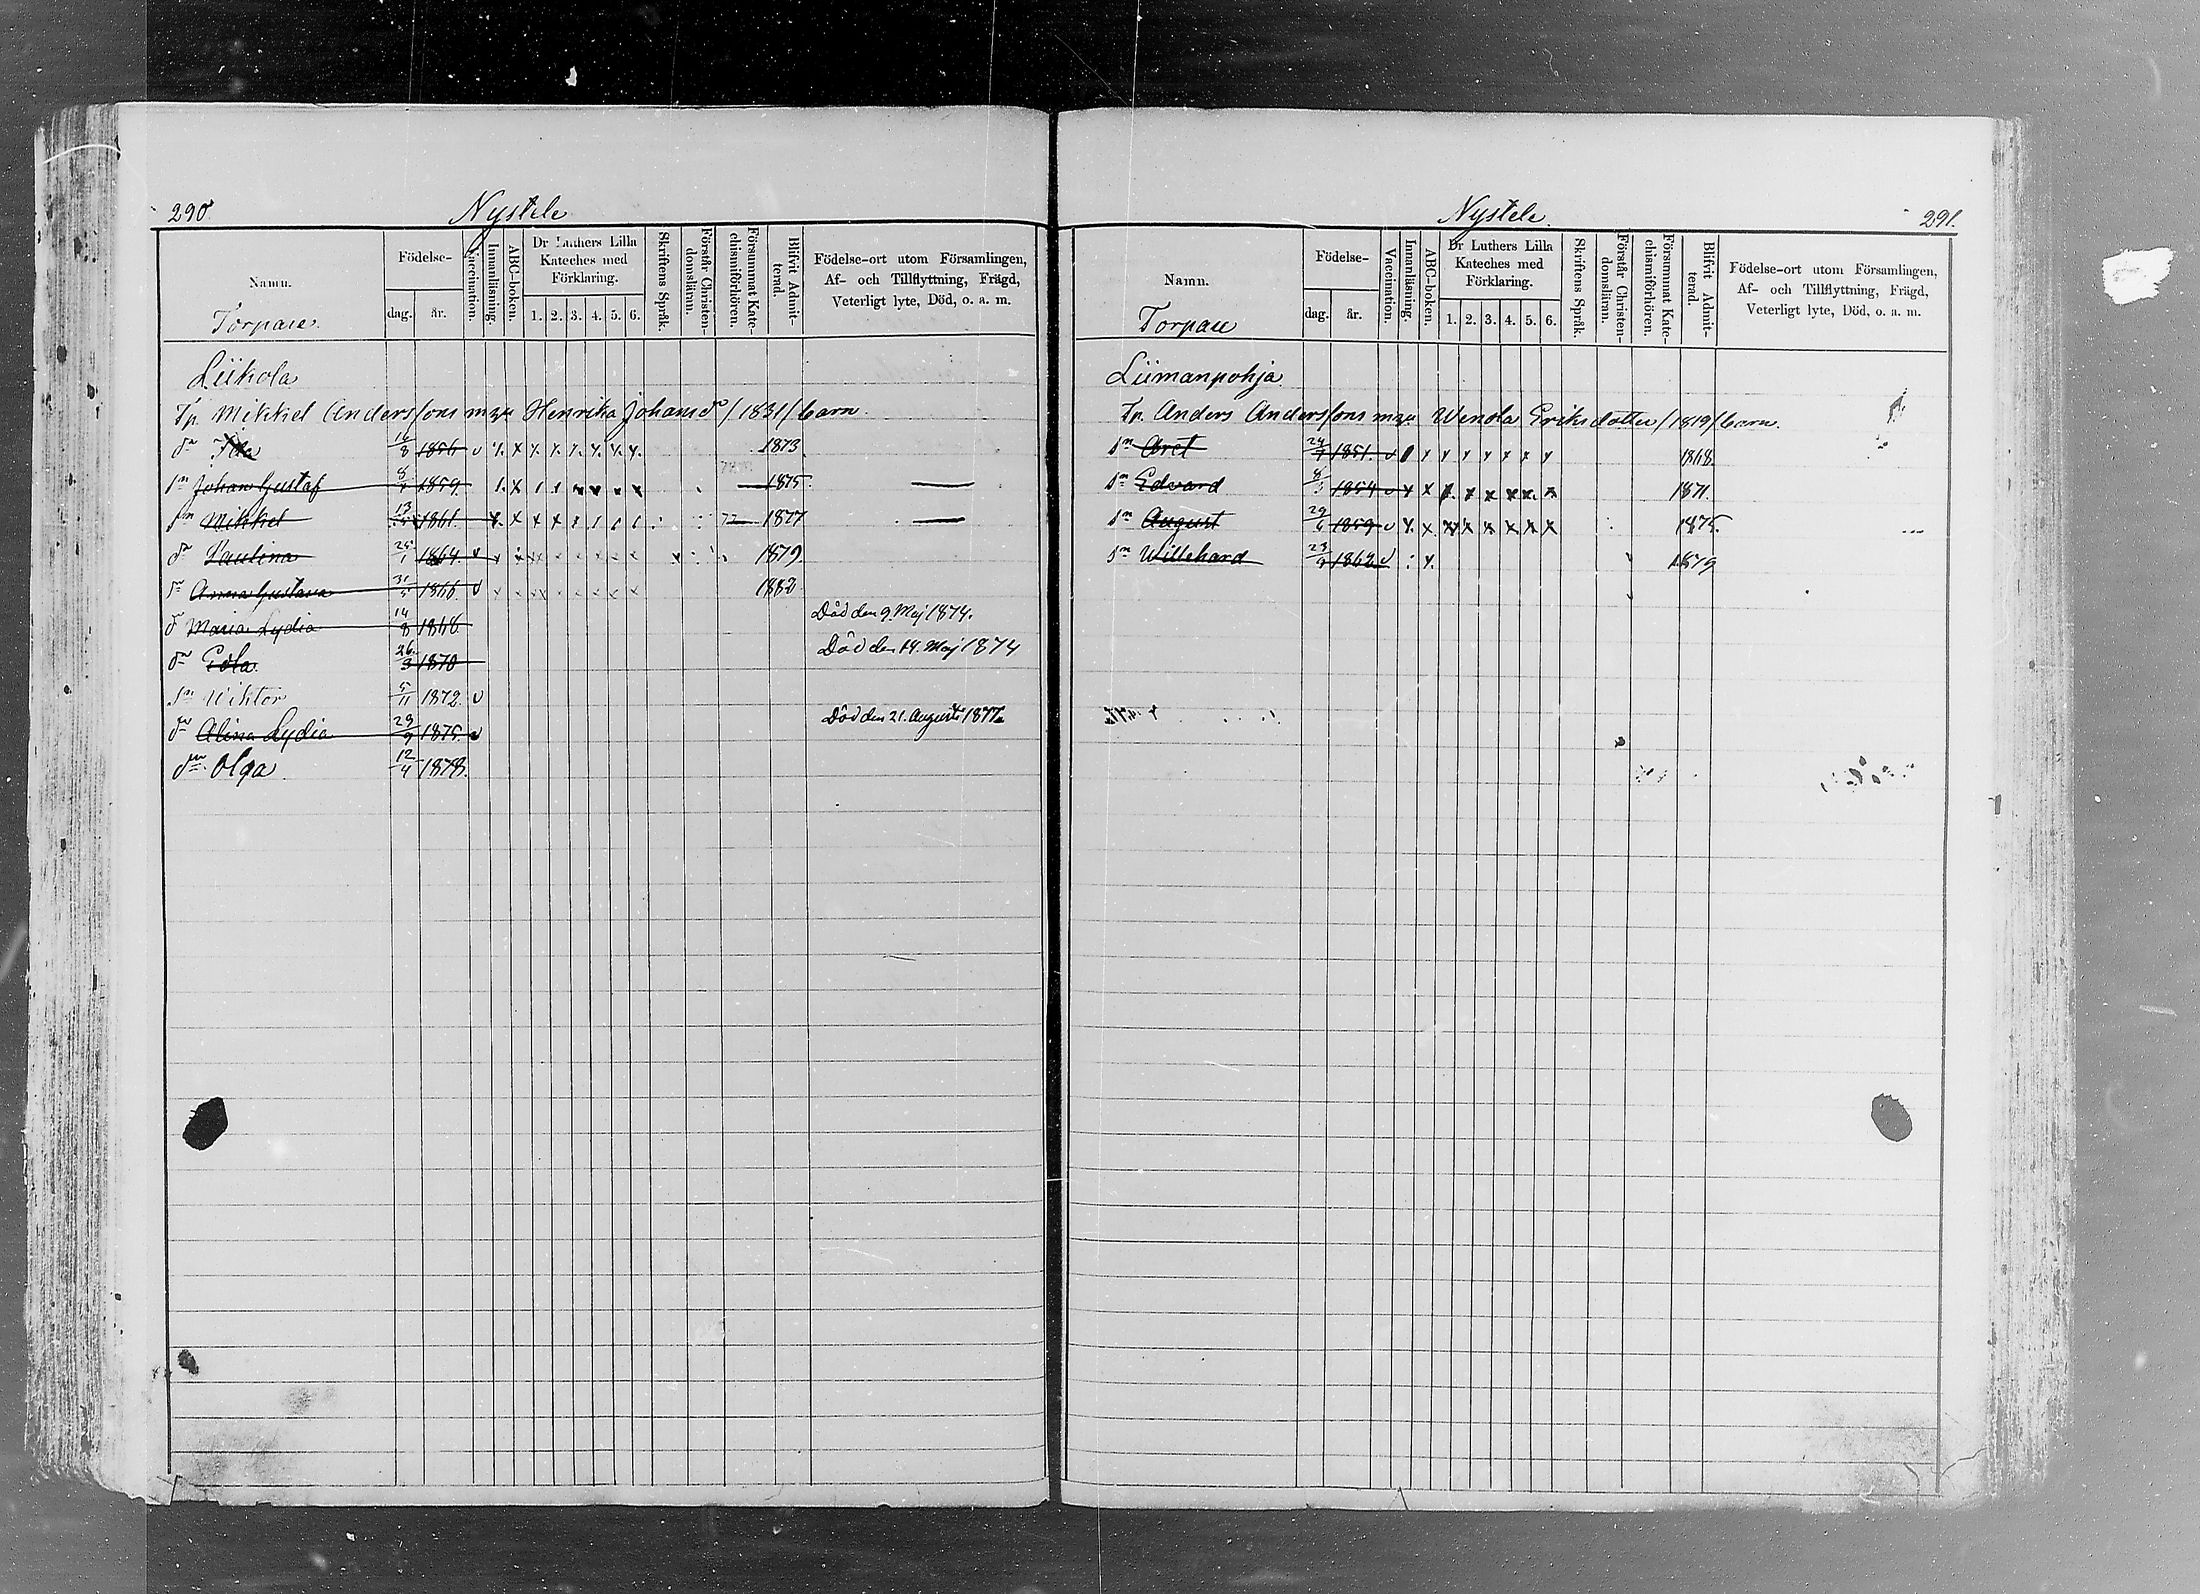 290
Nystele
Namn.
Födelse-
dag.
år.
Vaccination.
Innanläsning.
ABC-boken.
Dr Luthers Lilla
Kateches med
Förklaring.
1. 2. 3. 4. 5. 6.
Skriftens Språk.
Förstår Christen-
domslären.
Försummat Kate-
chismiförhören.
Blifvit Admit-
terad.
Födelse-ort utom Församlingen,
Af- och Tillflyttning, Frägd,
Veterligt lyte, Död, o. a. m.
Torpare.
Liikola
Tp. Mikkel Anderssons m. hu Henrika Johansdr /1831/ barn
dr Ida 16/8 1856 1873
sn Johan Gustaf 1859 1875
sn Mikkel 1861 1877
dr Paulina 25/1 1864 1879
dr Anna Gustava 31/5 1866 1882
dr Maria Lydia 14/8 1868 Död den 9. Maj 1874.
dr 26/3 1870 Död den 14. Maj 1874
sn Wiktor 5/11 1872
dr Alina Lydia 29/9 1875 Död den 21. Augusti 1877.
dr Olga 12/4 1878.
Nystele.
291.
Namn.
Födelse-
dag.
år.
Vaccination.
Innanläsning.
ABC-boken.
Dr Luthers Lilla
Kateches med
Förklaring.
1. 2. 3. 4. 5. 6.
Skriftens Språk.
Förstår Christen-
domslären.
Försummat Kate-
chismiförhören.
Blifvit Admit-
terad.
Födelse-ort utom Församlingen,
Af- och Tillflyttning, Frägd,
Veterligt lyte, Död, o. a. m.
Torpare
Liimanpohja
Tp. Anders Anderssons m. hu Wendla Eriksdotter /1819/ barn.
sn 1851 1868.
sn Edvard 1854 1871.
sn August 29/6 1859 1875.
sn Willehard 23/9 1862 1879